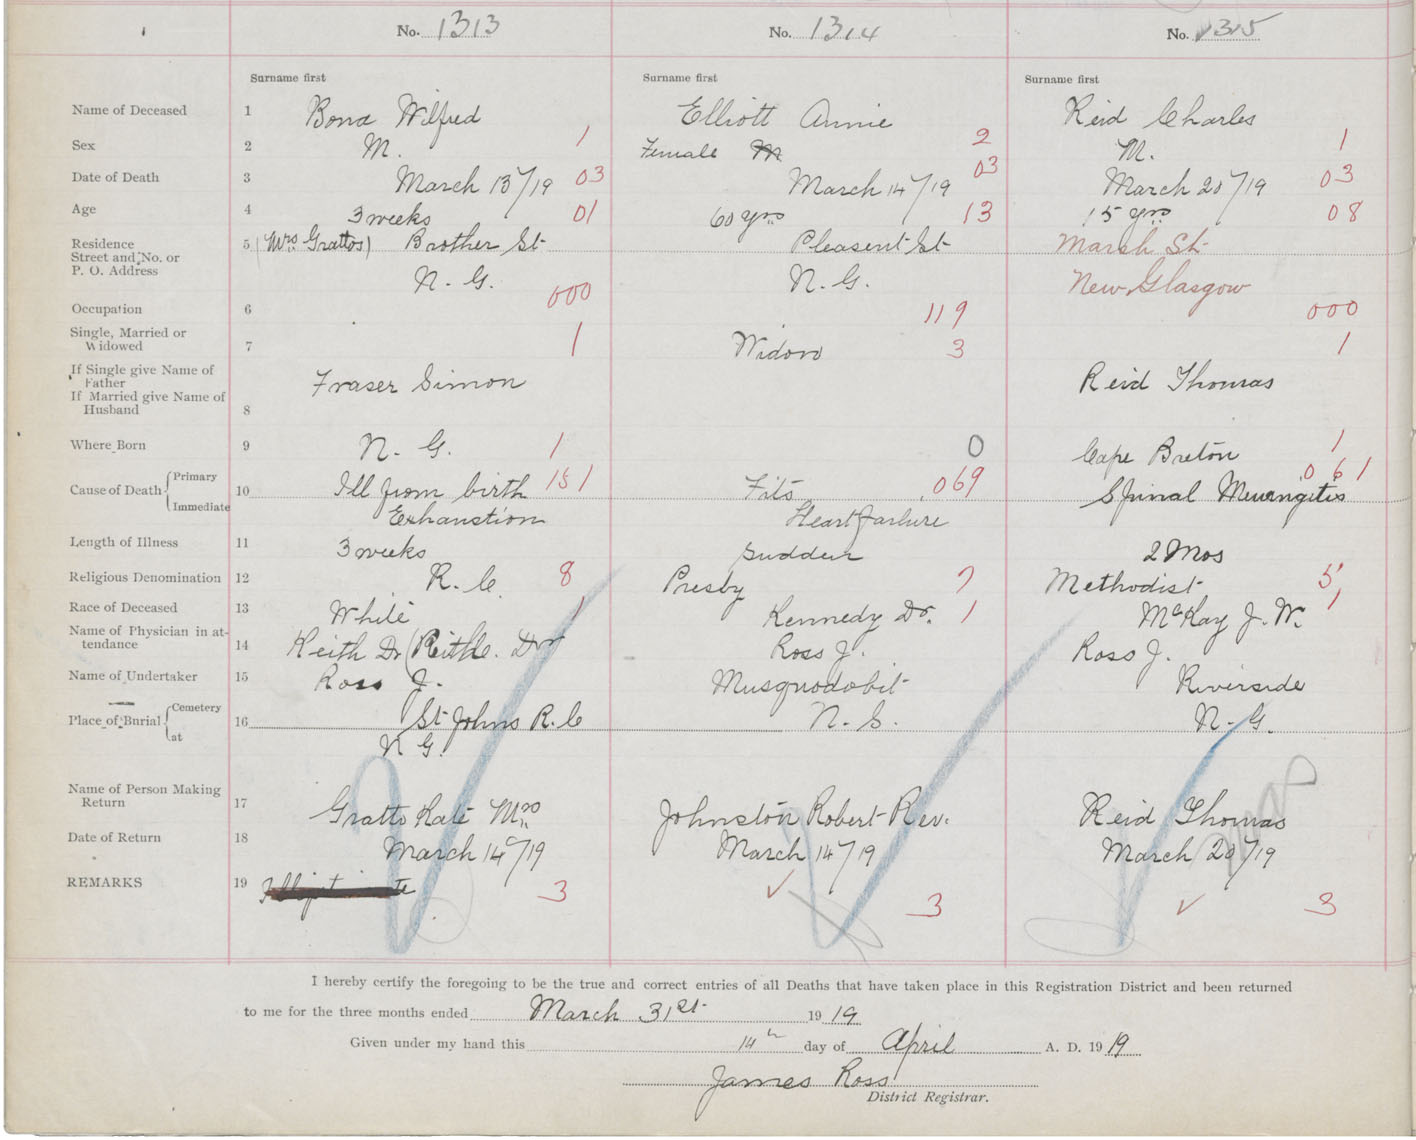 No. 1313 No. 1314 No. 1315
Surname first Surname first Surname first
Name of Deceased 1 Bona Wilfred Elliott Annie Reid Charles
Sex 2 M. 1 Female M 2 M. 1
Date of Death 3 March 13/19 03 March 14/19 03 March 20/19 03
Age 4 3 weeks 01 60 yrs 13 15 yrs 08
Residence 5 (Mrs Grattos) Brother St Pleasent St Marsh St
Street and No. or
P. O. Address N. G. N. G. New Glasgow
Occupation 6 000 119 000
Single, Married or
Widowed 7 1 Widow 3 1
If Single give Name of
Father Fraser Simon Reid Thomas
If Married give Name of
Husband 8
Where Born 9 N. G. 1 0 Cape Breton 1
Cause of Death Primary 10 Ill from birth 151 Fits 069 Spinal Meningitis 061
Immediate Exhaustion Heart failure
Length of Illness 11 3 weeks Sudden 2 Mos
Religious Denomination 12 R. C. 8 Presby 7 Methodist 5
Race of Deceased 13 White 1 Kennedy Dr. 1 McKay J. W. 1
Name of Physician in at-
tendance 14 Keith Dr Ross J. Ross J.
Name of Undertaker 15 Ross J. Musquodobit Riverside
Place of Burial Cemetery 16 St Johns R. C N. S. N. G.
at N G.
Name of Person Making
Return 17 Gratto Kate Mrs Johnston Robert Rev. Reid Thomas
Date of Return 18 March 14/19 March 14/19 March 20/19
REMARKS 19 3 3 3
I hereby certify the foregoing to be the true and correct entries of all Deaths that have taken place in this Registration District and been returned
to me for the three months ended March 31st 1919
Given under my hand this 14th day of April A. D. 1919
James Ross
District Registrar.